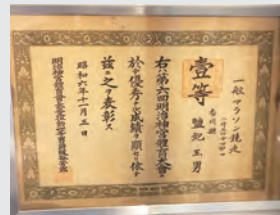 一般マラソン競走
壹等
香川縣
鹽飽玉男
右ハ第六回明治神宮體育大會ニ
於テ優秀ナル成績ヲ顯セリ依テ
玆ニ之ヲ表彰ス
昭和六年十一月三日
明治神宮體育會